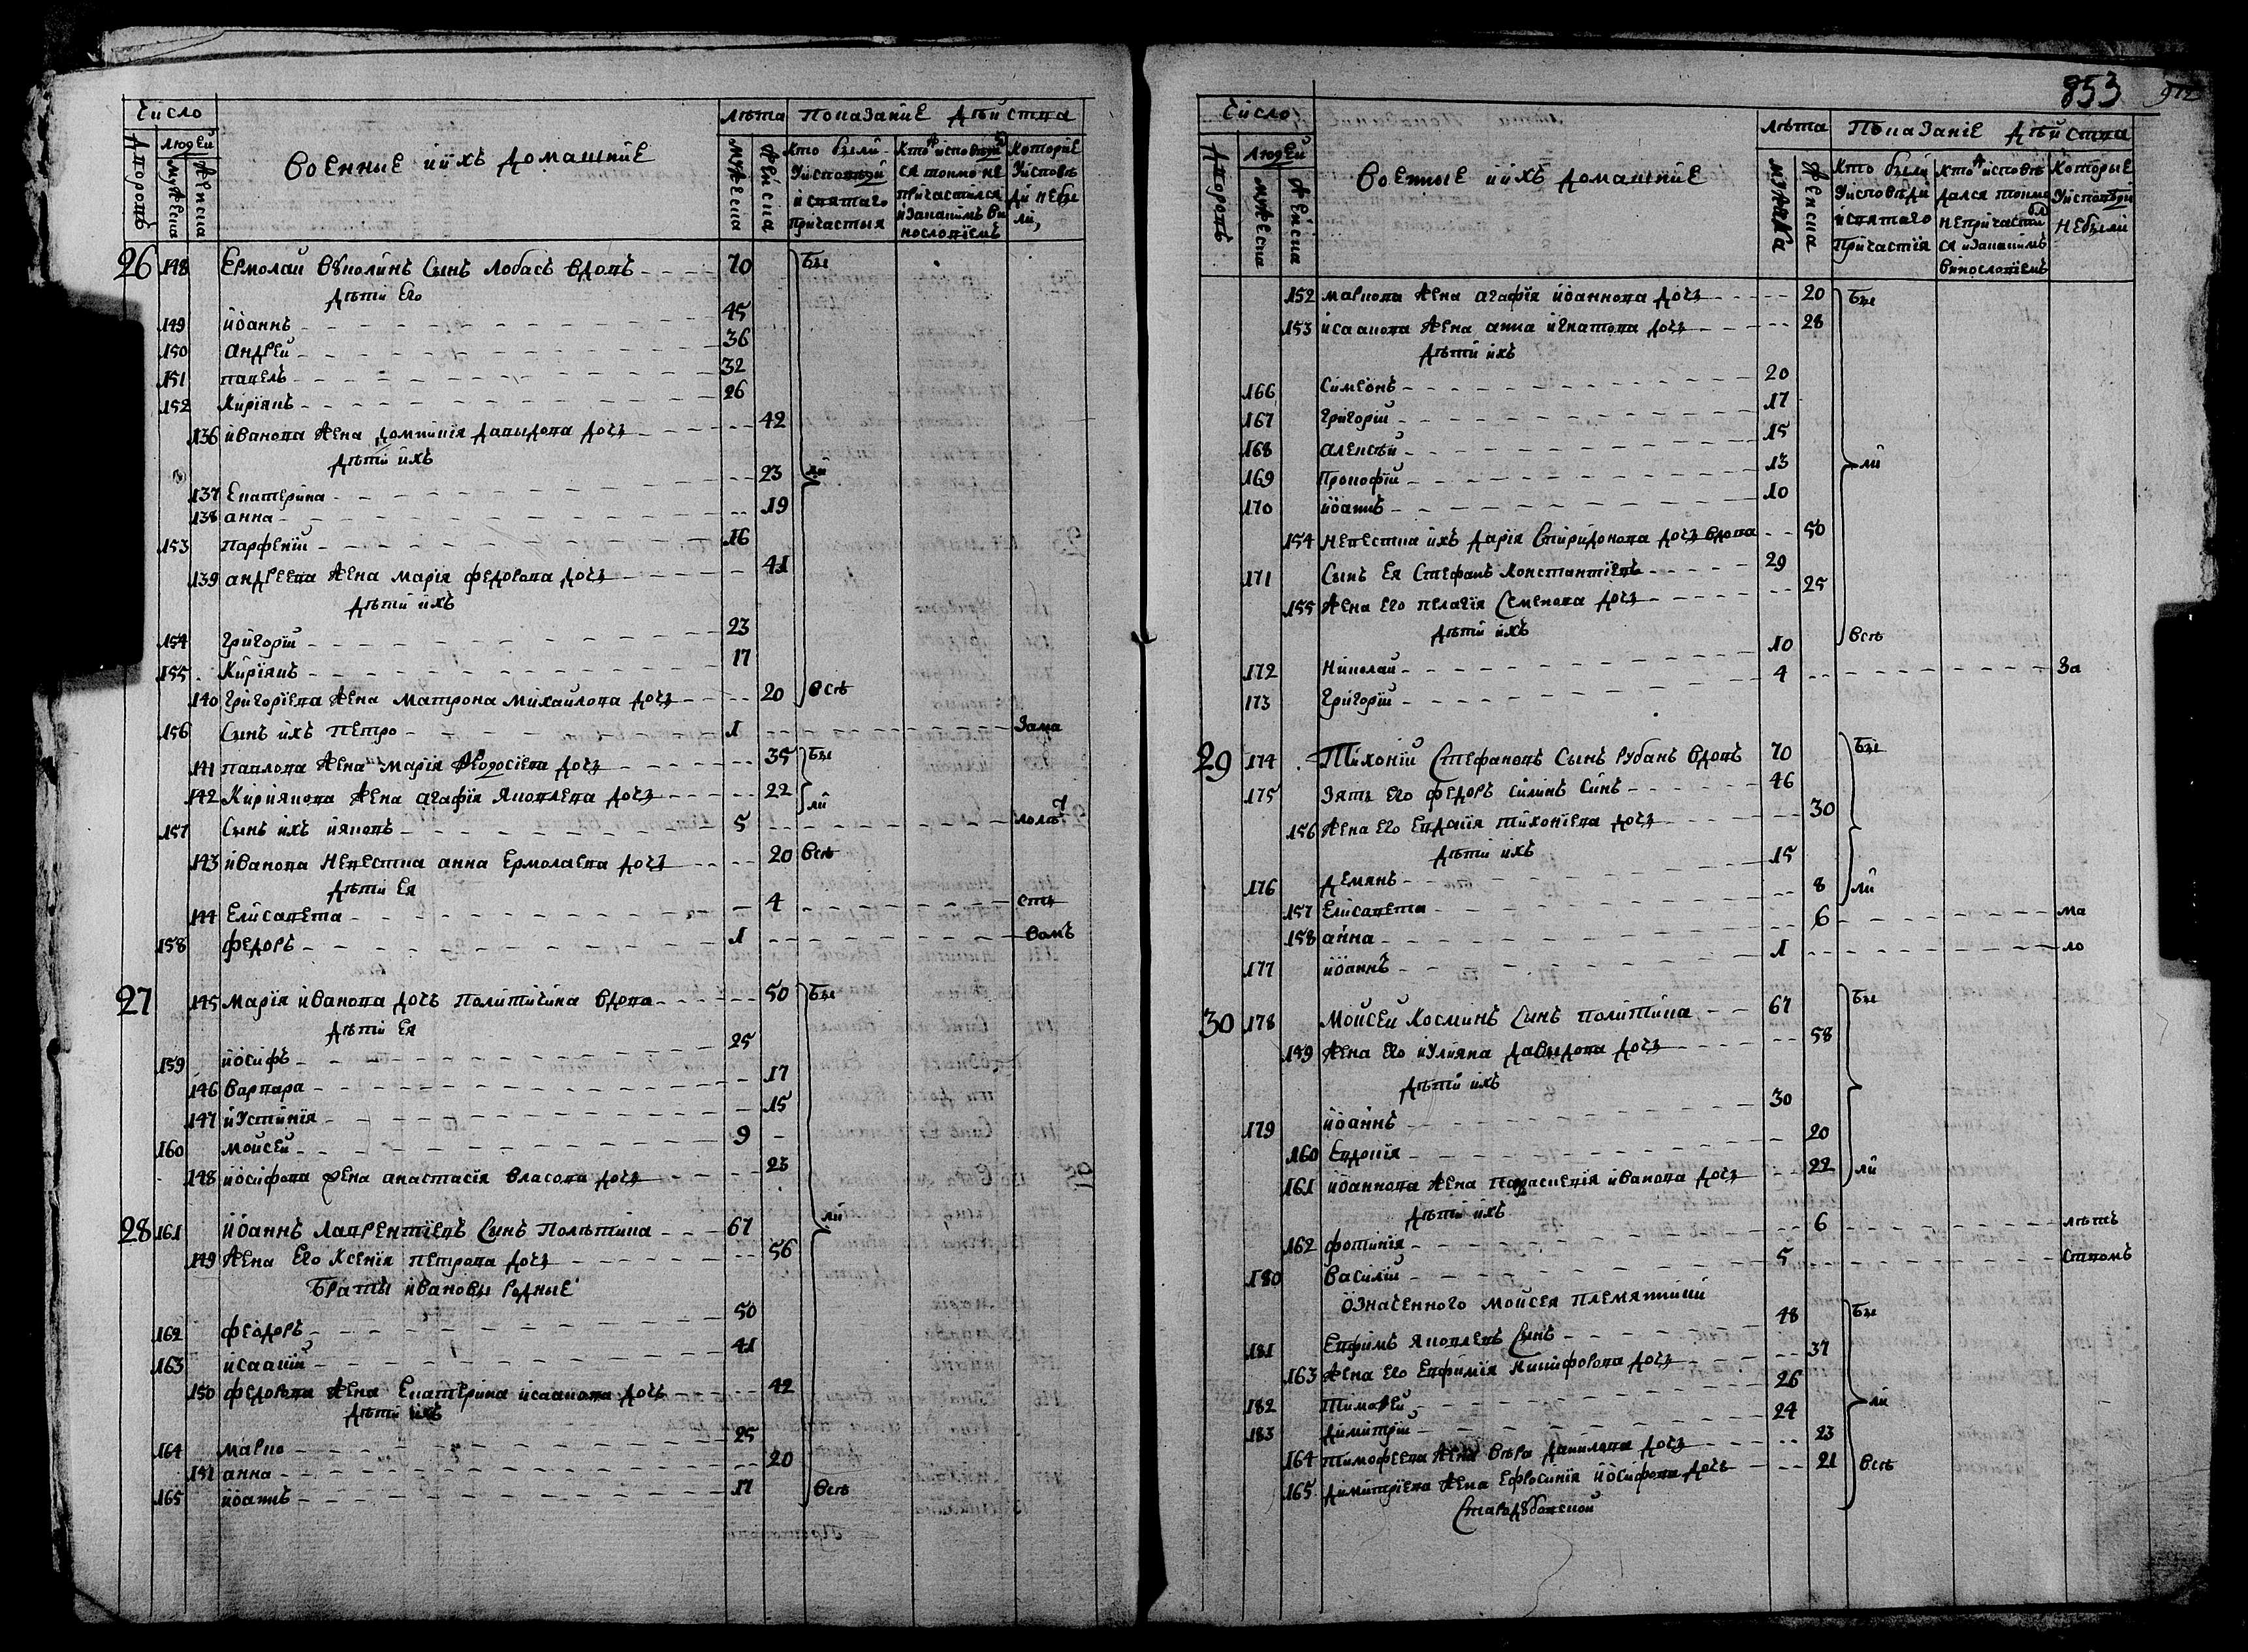 Число
Лѣта Показание Дѣйства
Дворовъ
Людей
Мужеска
Женска
Военные и ихъ домашние
Мужеска
Женска
Кто были
у исповеди
и святаго
причастыя
Кто исповедовал
ся токмо не
причастился
и за какимъ ви
нословіемъ
Которие
у исповѣ
ди небы
ли,
26 148 Ермолай Вуколинъ Сынъ Лобасъ вдовъ 70 Бы
Дѣти Его
149 Иоаннъ 45
150 андрей 36
151 павелъ 32
152 Кириянъ 26
136 иванова жена Домникія давыдова дочь 42
Дѣти ихъ
137 Екатерина 23 ли
138 анна 19
153 Парфений 16
139 андреева жена Марія федорова дочь 41
Дѣти ихъ
154 Григорій 23
155 Киріянъ 17
140 Григоріева жена Матрона Михаилова дочь 20 всѣ
156 Сынъ ихъ Петро 1 Зама
141 павлова жена Марія Феодосіева дочь 35 Бы
142 Кириянова жена агафія Яковлева дочь 22 ли
157 Сынъ ихъ ияковъ 5 лолѣт
143 иванова невестка анна Ермолаева дочь 20 всѣ
Дѣти Ея
144 Елисавета 4 ств
158 федоръ 1 вомъ
27 145 Марія иванова дочъ Политичина вдова 50 Бы
Дѣти Ея
159 иосифъ 25
146 варвара 17
147 иустинія 15
160 моисей 9
148 иосифова жена анастасія власова дочь 23
28 161 Иоаннъ Лаврентіевъ Сынъ Полѣтика 67 ли
149 жена Его Ксенія петрова дочь 56
Браты ивановы родные
162 феодоръ 50
163 исаакій 41
150 федорова жена Екатерина исаакова дочь 42
Дѣти ихъ
164 марко 25
151 анна 20
165 иоаннъ 17 всѣ
853
Число
Лѣта Показаніе Дѣйства
Дворовъ
Людей
Мужеска
Женска
Военные и ихъ домашние
Мужска
Женска
Кто были
у исповѣди
и святаго
причастія
Кто исповѣ
дался токмо
непричастил
ся и за какимъ
винословіемъ
Которые
у исповѣди
небыли
152 маркова жена агафія иоаннова дочь 20 Бы
153 исаакова жена анна игнатова дочь 28
Дѣти ихъ
166 Симеонъ 20
167 Григорій 17
168 алексѣй 15
169 Прокофій 13 ли
170 иоаннъ 10
154 невестка ихъ дарія Спиридонова дочь вдова 50
171 Сынъ Ея Стефанъ Константіевъ 29
155 жена его пелагія Семенова дочь 25
Дѣти ихъ
172 Николай 10 всѣ
173 Григорій 4 За
29 174 Тихоній Стефановъ Сынъ Рубанъ вдовъ 70 Бы
175 Зять Его федоръ силинъ Синъ 46
156 жена Его Евдокія тихоніева дочь 30
Дѣти ихъ
176 демянъ 15
157 Елисавета 8 ли
158 анна 6 ма
177 иоаннъ 1 ло
30 178 Моисей Косминъ Сынъ политика 67 Бы
159 жена Его иулияна давыдова дочь 58
Дѣти ихъ
179 иоаннъ 30
160 Евдокія 20
161 иоаннова жена Параскевія иванова дочь 22 ли
Дѣти ихъ
162 фотинія 6 лѣтъ
180 Василій 5 ствомъ
Означенного Моисея племянники
181 Ефимъ Яковлевъ Сынъ 48 Бы
163 жена Его Евфимія никифорова дочь 37
182 Тимофей 26 ли
183 димитрій 24
164 тимофеева жена вѣра данилова дочь 23
165 димитріева жена Ефросинія иосифова дочь 21 всѣ
Стародубовской